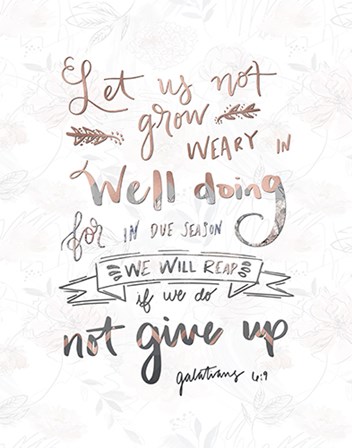 Let us not
grow
WEARY IN
Well doing
for IN DUE SEASON
WE WILL REAP
if we do
not give up
galatians 6:9